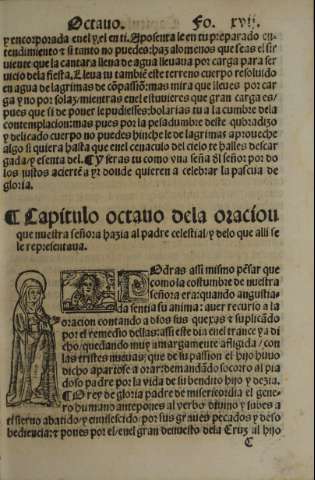 Octauo. Fo. xvij.
y encorporada enel y el en ti. Aposenta le en tu preparado en
tendimiento ⁊ si tanto no puedes: haz alomenos que seas el sir
uiente que la cantara llena de agua lleuaua por carga para ser
uicio dela fiesta. Lleua tu tambiẽ este terreno cuerpo resoluido
en agua de lagrimas de cõpassiõ: mas mira que lleues por car
ga y no por solaz/ mientras enel estuuieres que gran carga es/
pues que si de poner le pudiesses: bolarias tu a la cumbre dela
contemplacion: mas pues por la pesadumbre deste quebradizo
y delicado cuerpo no puedes hinche le de lagrimas aproueche
algo si quiera hasta que enel cenaculo del cielo te halles descar
gada/ y esenta del. ¶ Y seras tu como vna seña ðl señor por do
los justos aciertẽ a yr donde quieren a celebrar la pascua de
gloria.
¶ Capitulo octauo dela oracion
que nuestra señora hazia al padre celestial/ y delo que alli se
le representaua.
Podras assi mismo pẽsar que
como la costumbre de nuestra
señora era: quando angustia
da sentia su anima: auer recurso a la
oracion contando a dios sus quexas ⁊ suplicādo
por el remedio dellas: assi este dia enel trance ya di
cho/ quedando muy amargamente affligida/ con
las tristes nueuas/ que de su passion el hijo huuo
dicho apartose a orar: demandādo socorro al pia
doso padre por la vida de su bendito hijo y dezia.
¶ O rey de gloria padre de misericordia el gene
ro humano antepones al verbo diuino y salues a
el sieruo abatido/ y enuilescido/ por sus graues pecados y deso
bediencia: ⁊ pones por el/ enel gran denuesto dela Cruz al hijo
C